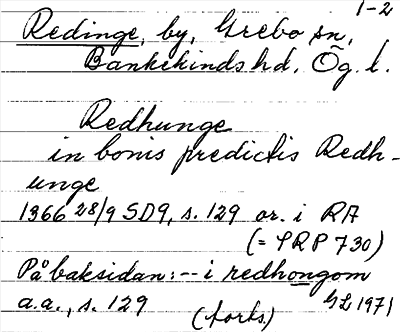 1-2
Redinge, by, Grebo sn,
Bankekinds hd, Ög. l.
Redhunge
in bonis predictis Redh-
unge
1366 28/9 SD9, s. 129 or. i RA
(= SRP 730)
På baksidan: -- i redhongom
a.a., s. 129
(forts.)
GL 1971